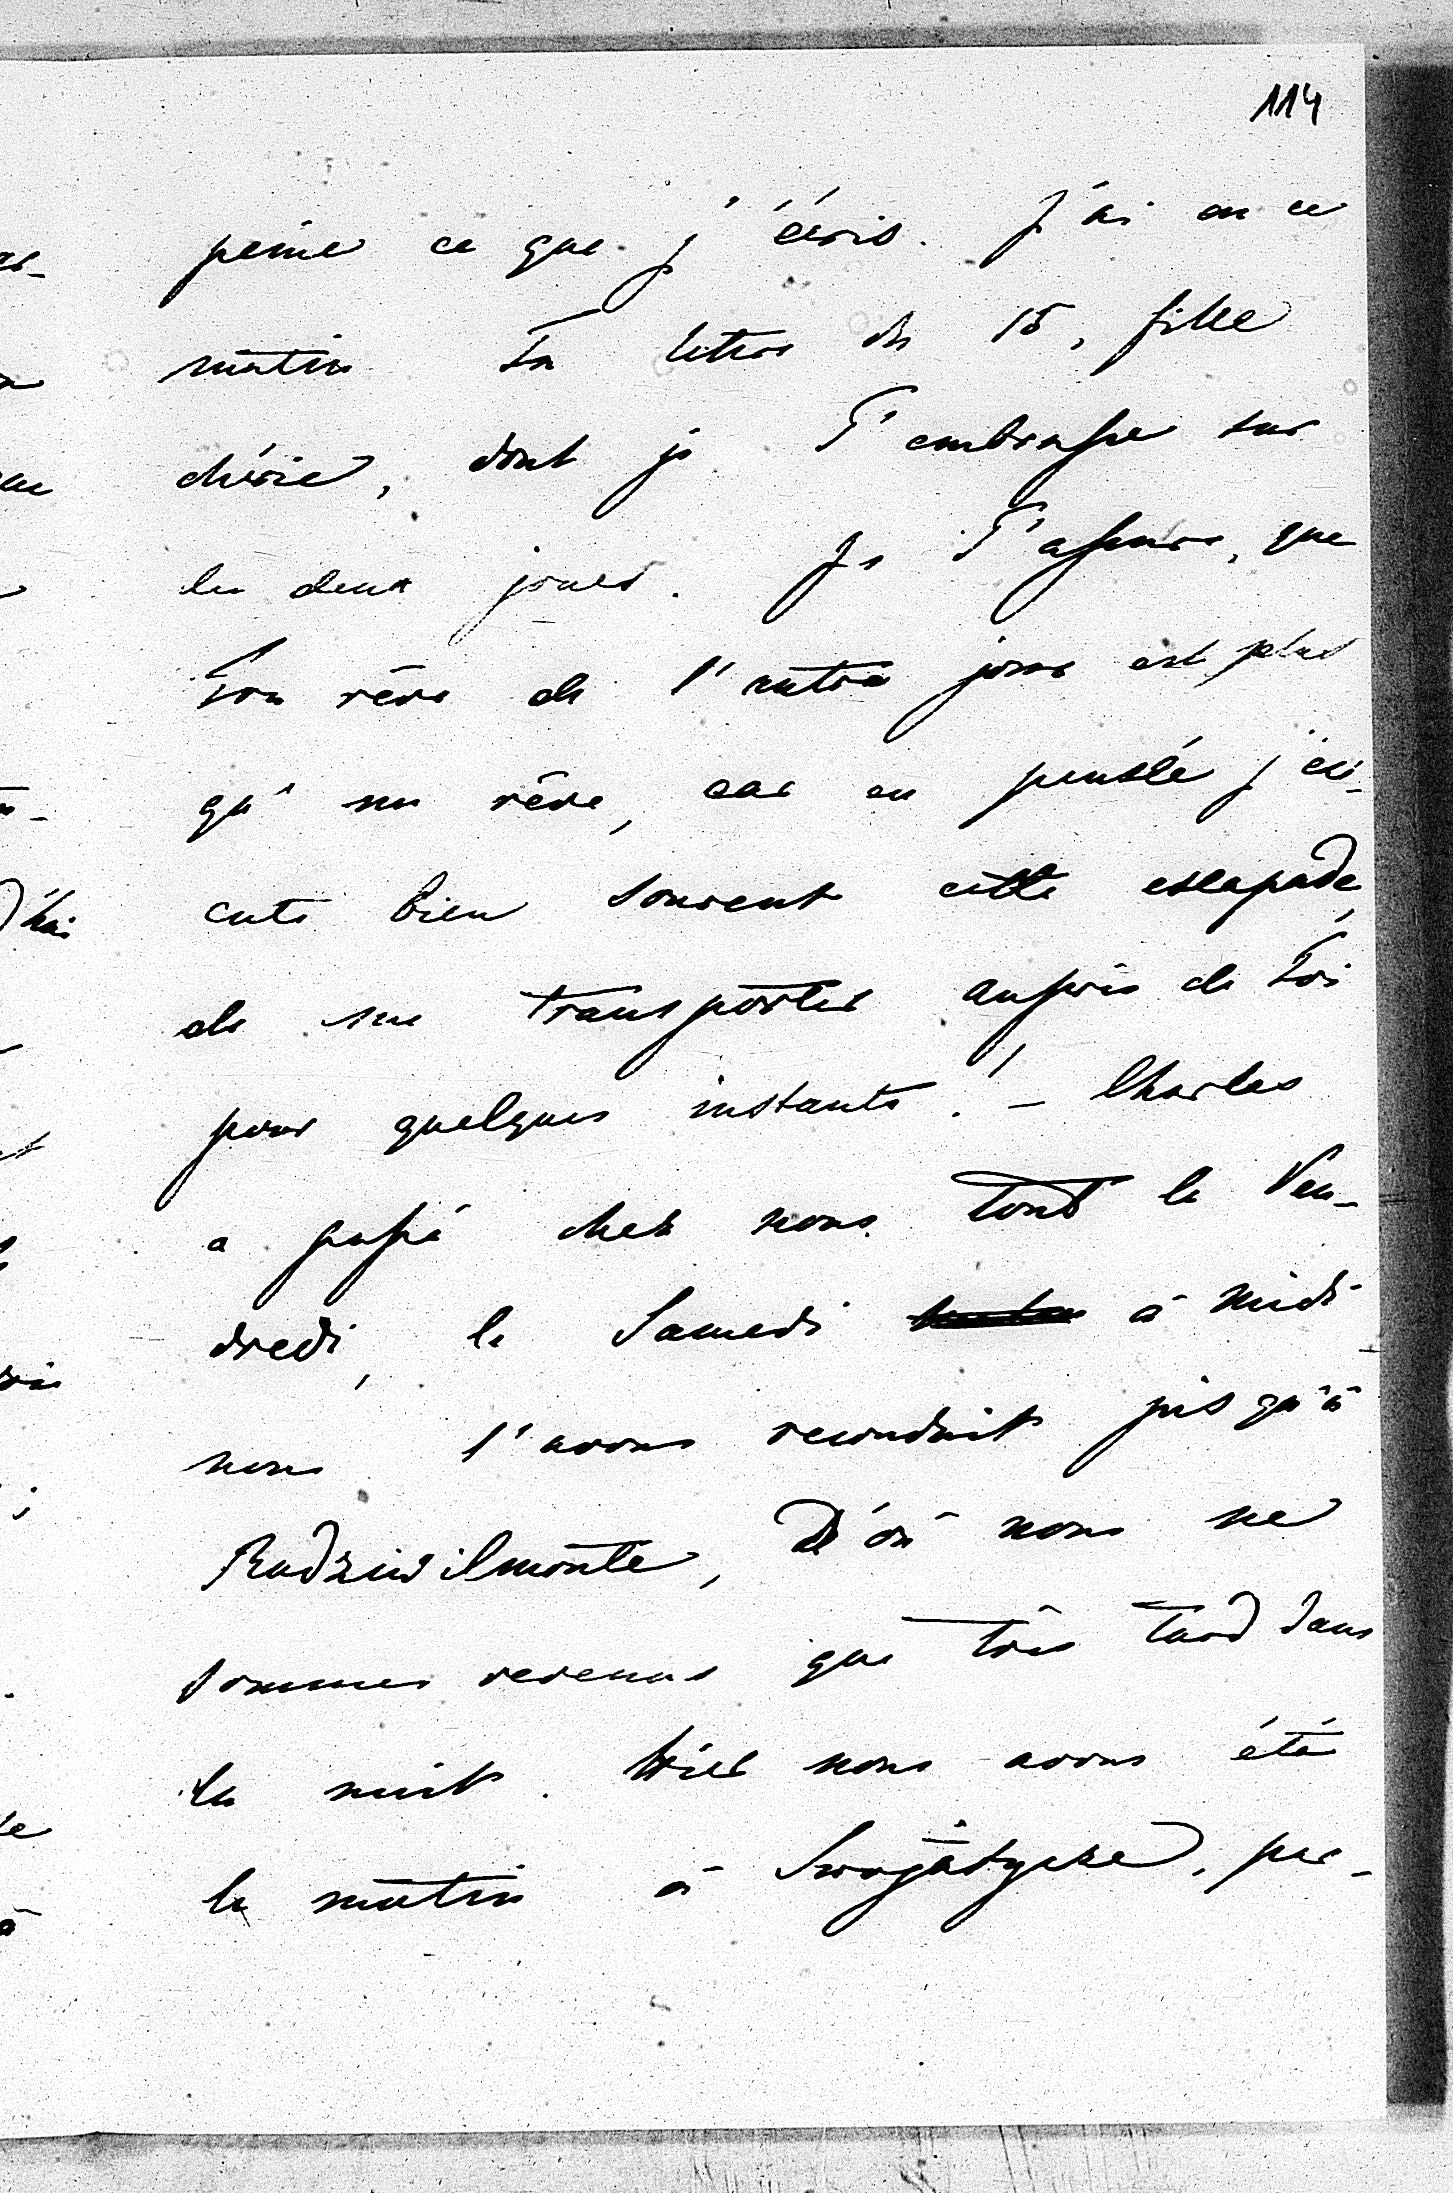 114
peine ce que j'écris. J'ai eu ce
matin Ta lettre du 15, fille
chérie, dont je T'embrasse sur
les deux joues. Je T'assure, que
Ton rêve de l'autre jour est plus
qu'un rêve, car en pensée j'exé-
cute bien souvent cette escapade,
de me transporter auprès de Toi
pour quelques instants! – Charles
a passé chez nous tout le Ven-
dredi, le Samedi à midi
nous l'avons reconduit jusqu'à
Radziwilmonte, d'où nous ne
sommes revenus que très tard dans
la nuit. Hier nous avons été
le matin à par-